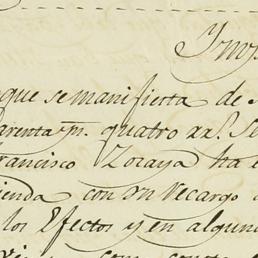 que se manifiesta de
arenta ms. quatro rs. Se
Francisco Zoraya ha e
ienda con un recargo
los Efectos y en algun